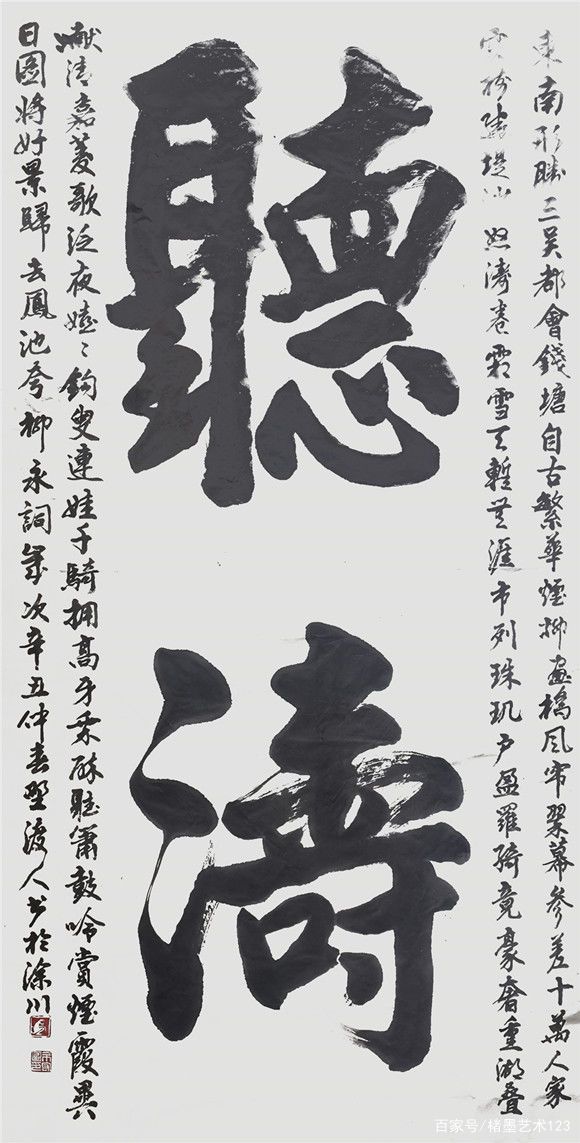 東南形勝三吳都會錢塘自古繁華煙柳畫橋風帘翠幕參差十萬人家
雲樹繞堤沙怒濤卷霜雪天塹無涯市列珠璣戶盈羅綺竟豪奢重湖疊
聽濤
巘清嘉菱歌泛夜嬉〻釣叟連娃千騎擁高牙乘醉聽簫鼓吟賞煙霞異
日圖將好景歸去鳳池夸柳永詞歲次辛丑仲春野渡人書於滁川
百家号/楮墨艺术123